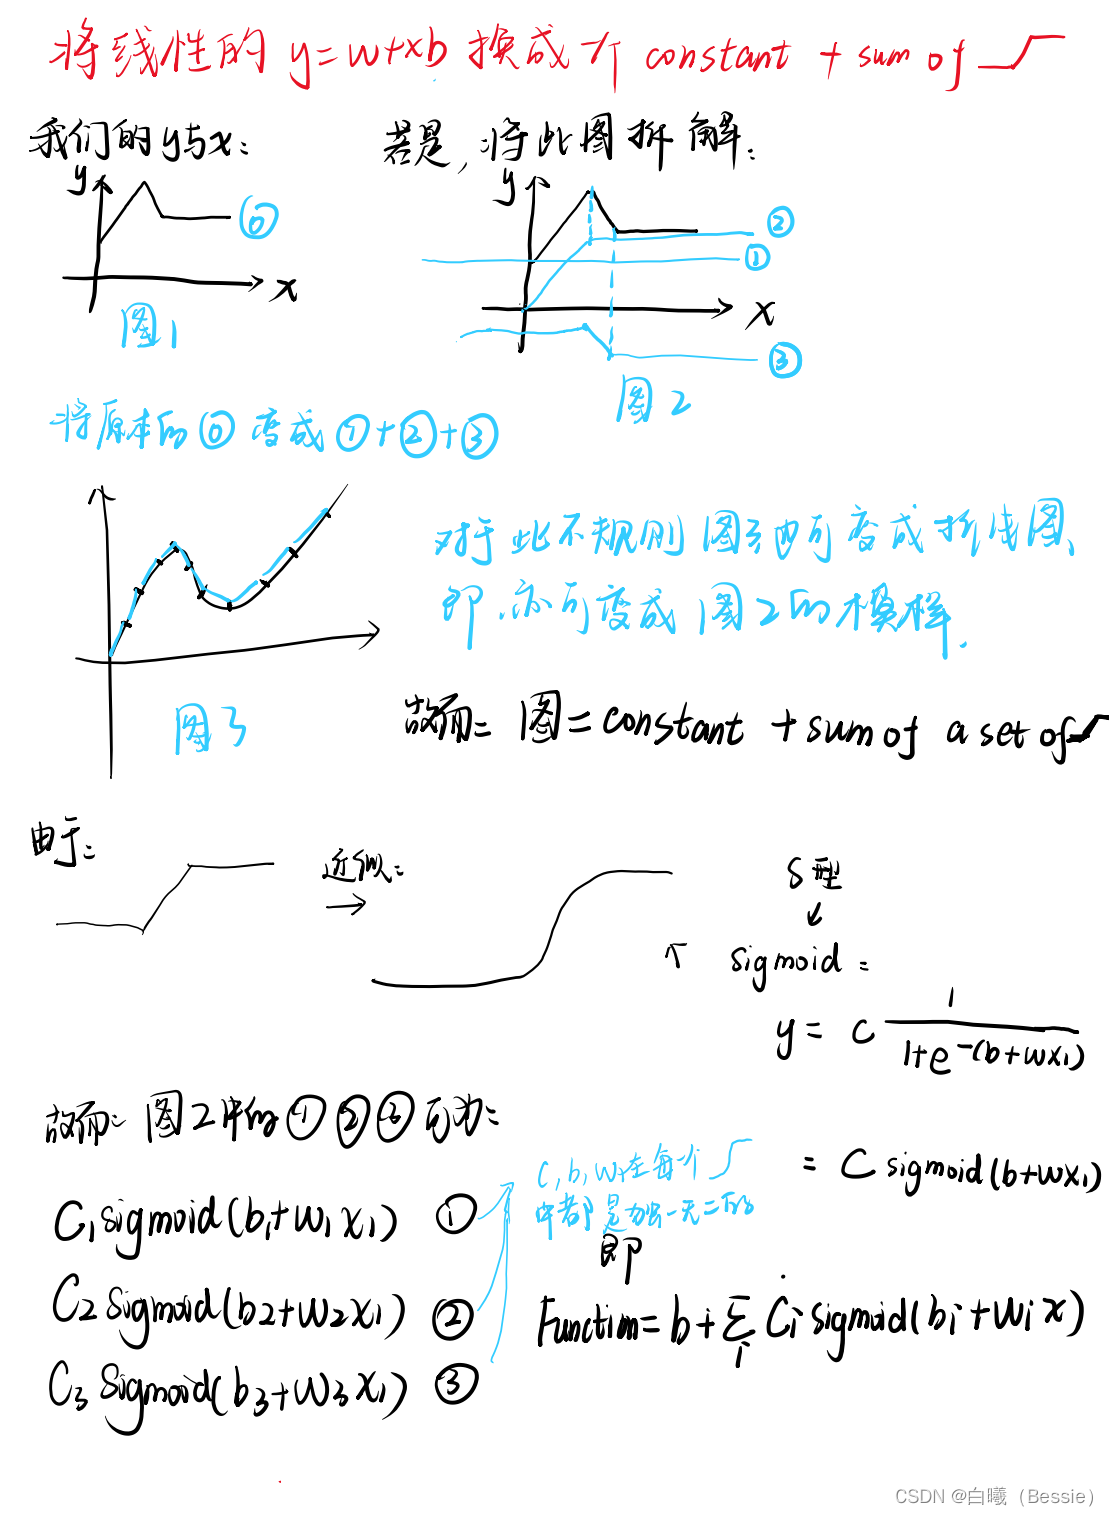 将线性的 y=w+xb 换成一个 constant + sum of
我们的y与x:
若是,将此图拆解:
y
⓪
x
图1
y
②
①
x
③
图2
将原本的⓪变成①+②+③
对于此不规则图3也可变成折线图、
即,亦可变成图2的模样.
图3
故而: 图=constant +sum of a set of
由于:
近似:
→
S型
↓
sigmoid:
y= c 1/(1+e^-(b+wx₁))
= C sigmoid(b+wx₁)
故而: 图2中的①②③可为:
C₁sigmoid(b₁+w₁x₁) ①
C₂ sigmoid(b₂+w₂x₁) ②
C₃ sigmoid(b₃+w₃x₁) ③
C,b,w,在每个
中都是独一无二的
即
Function= b+∑ᵢ Cᵢ sigmoid(bᵢ+wᵢx)
CSDN @白曦（Bessie）